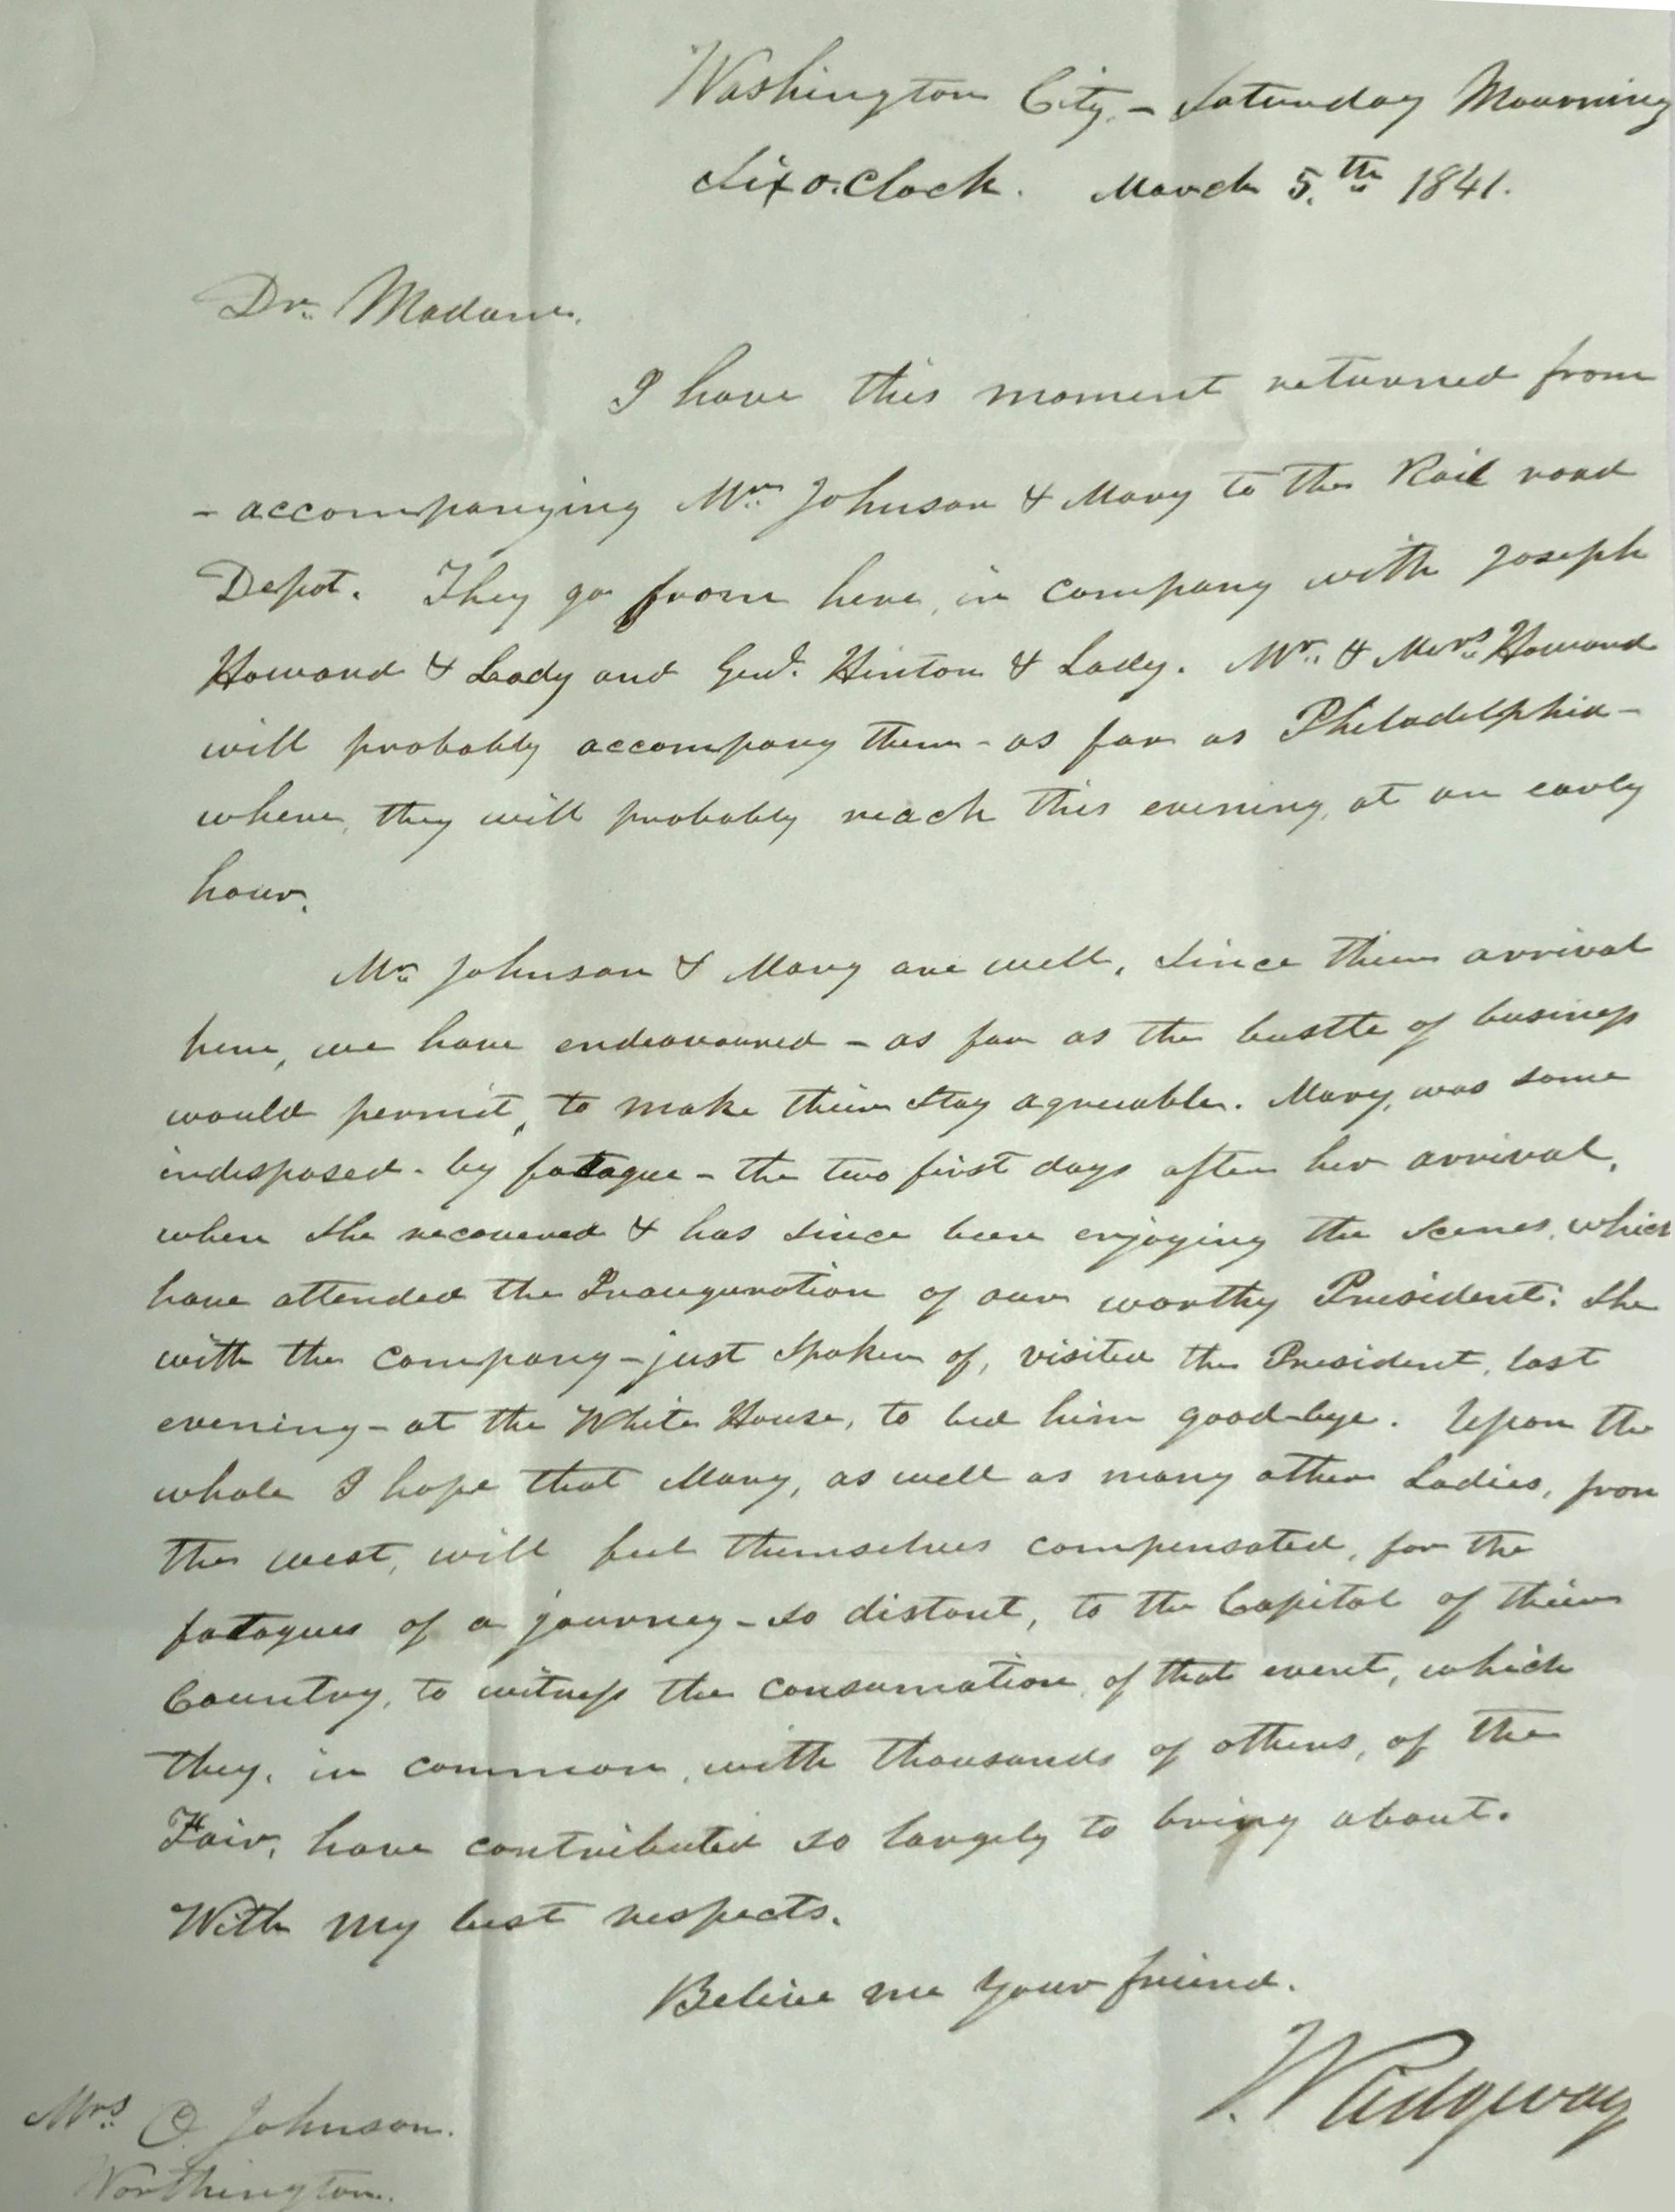 Washington City, - Saturday Mourning
Six o.Clock. March 5.th 1841.
Dr. Madame.
I have this moment returned from
- accompanying Mr. Johnson & Mary to the Rail road
Depot. They go from here, in company with Joseph
Howard & Lady and Genl. Hinton & Lady. Mr. & Mrs. Howard
will probably accompany them - as far as Philadelphia -
where, they will probably reach this evening, at an early
hour.
Mr. Johnson & Mary are well, since their arrival
here, we have endeavoured - as far as the bustle of business
would permit, to make their stay agreeable. Mary, was some
indisposed - by fatague - the two first days after her arrival,
when she recovered & has since been enjoying the scenes, which
have attended the Inauguration of our worthy President: she
with the company - just spoken of, visited the President, last
evening - at the White House, to bid him good-bye. Upon the
whole I hope that Mary, as well as many other Ladies, from
the west, will feel themselves compensated, for the
fatagues of a journey - so distant, to the Capital of their
Country, to witness the consumation, of that event, which
they, in common, with thousands of others, of the
Fair, have contributed so largely to bring about.
With my best respects.
Belive me your friend.
J. Ridgway
Mrs. O. Johnson.
Worthington.